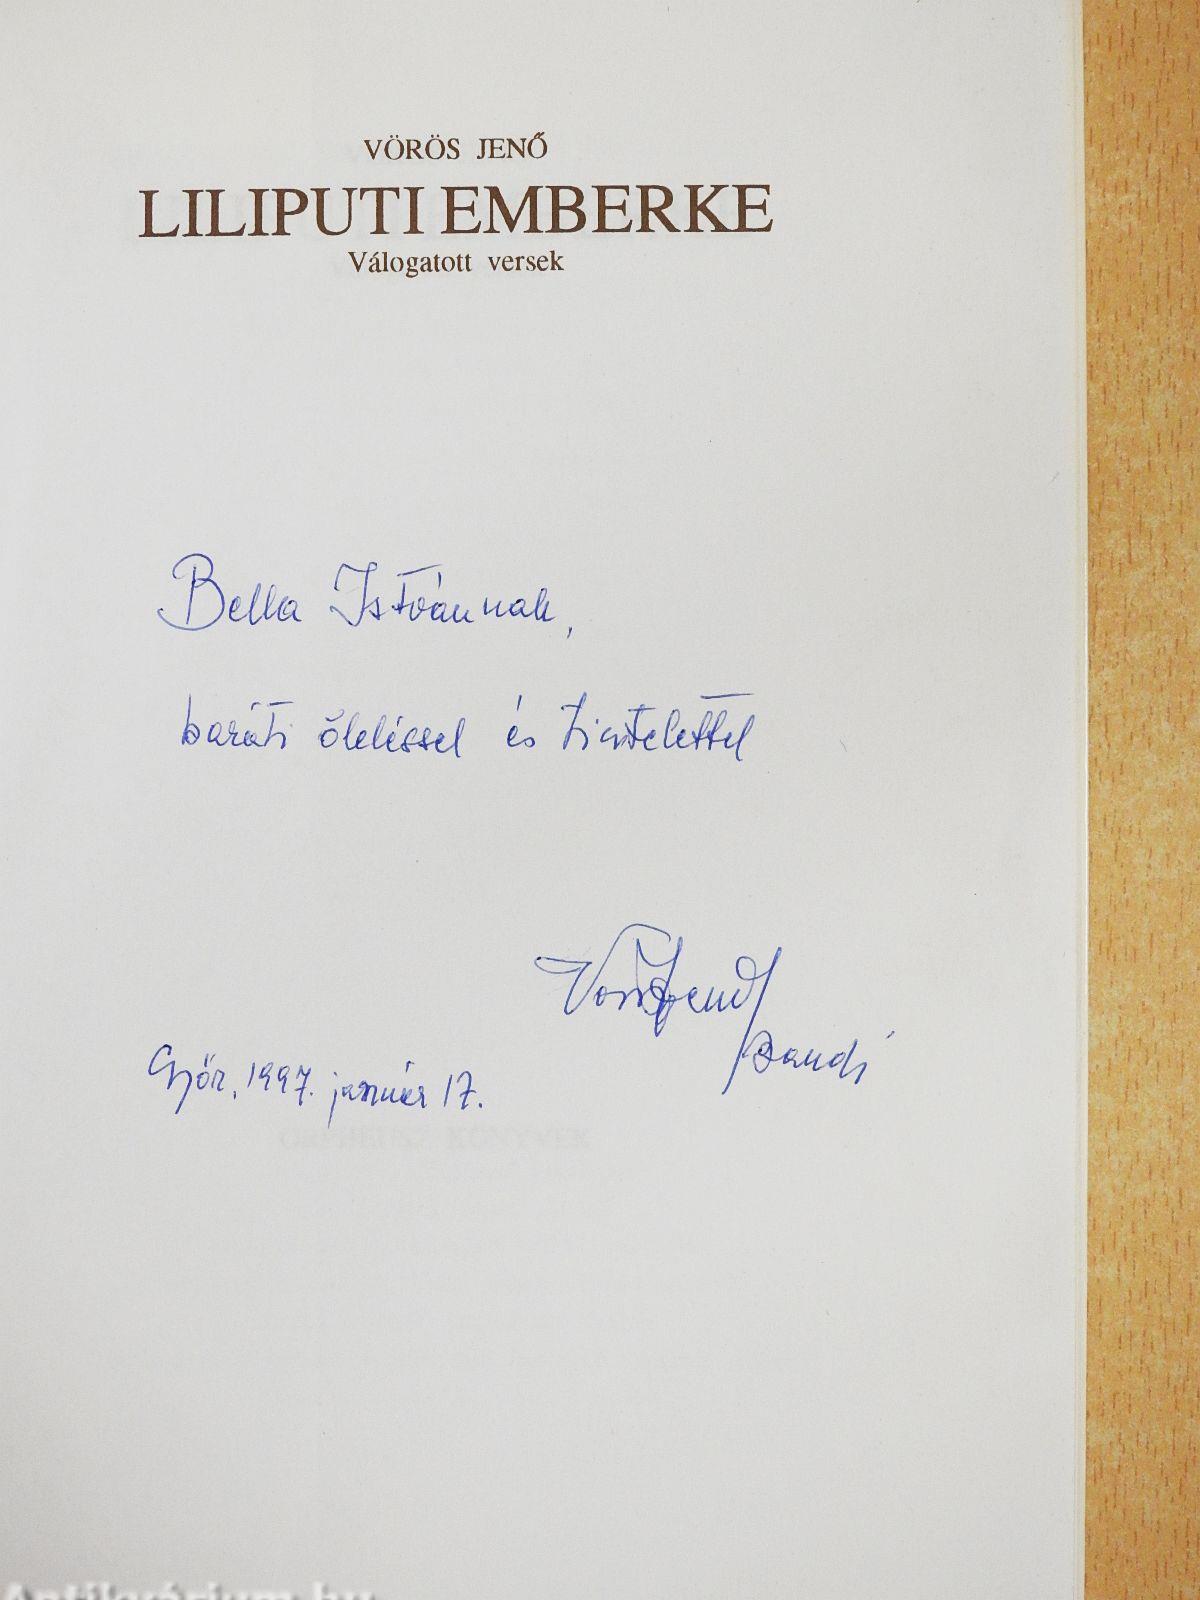 VÖRÖS JENŐ
LILIPUTI EMBERKE
Válogatott versek
Bella Istvánnak,
baráti öleléssel és tisztelettel
Vörös Jenő
Bandi
Győr, 1997. január 17.
ORPHEUSZ KÖNYVEK
Antikvárium.hu